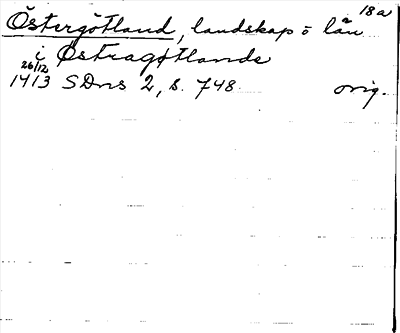 18a
Östergötland, landskap o län
i Østragøtlande
26/12
1413 SDns 2, s. 748 orig.